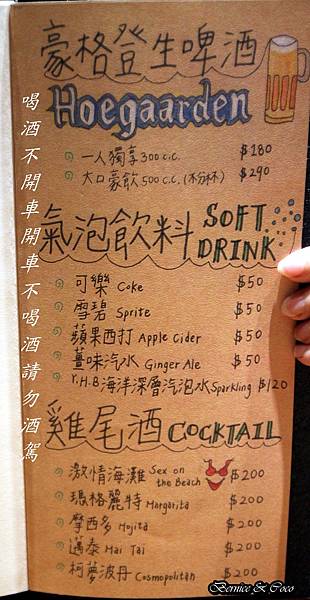 豪格登生啤酒
Hoegaarden
一人獨享 300 c.c. $180
大口豪飲 500 c.c. (不分杯) $290
氣泡飲料 SOFT DRINK
可樂 Coke $50
雪碧 Sprite $50
蘋果西打 Apple Cider $50
薑味汽水 Ginger Ale $50
Y.H.B 海洋深層汽泡水 Sparkling $120
雞尾酒 COCKTAIL
激情海灘 Sex on the Beach $200
瑪格麗特 Margarita $200
摩西多 Mojita $200
邁泰 Mai Tai $200
柯夢波丹 Cosmopolitan $200
喝酒不開車開車不喝酒請勿酒駕
Bernice & Coco